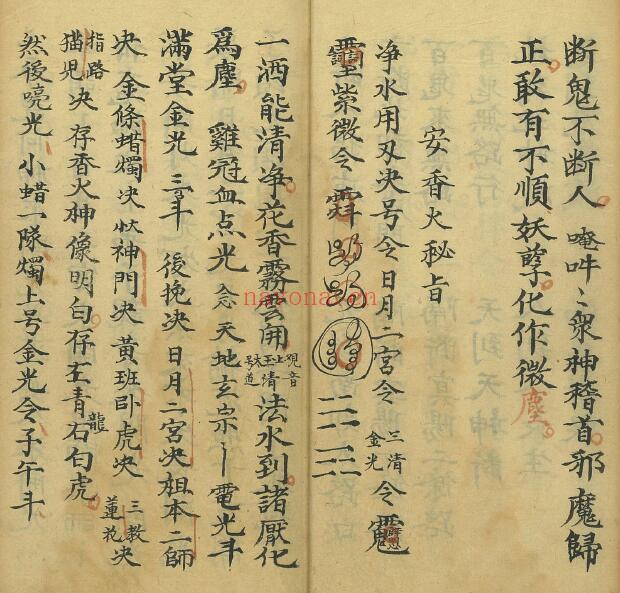 断鬼不断人 唵吽〻衆神稽首邪魔歸
正敢有不順妖孽化作微塵
安香火秘旨
净水用刃决号令日月二宫令 三清 金光 令
紫微令
一洒能清净花香霧雲開 观音 上玉清 大道 法水到諸厭化
爲塵 雞冠血点光 念天地玄宗 電光斗
滿堂金光 三斗 後挽决 日月二宫决祖本二師
决 金條蜡燭决 神門决 黄班卧虎决 三教 蓮花 决
指路 猫児决 存香火神像明白存左青龍石白虎
然後喨光 小蜡一隊燭上号金光令子午斗
nayona.cn